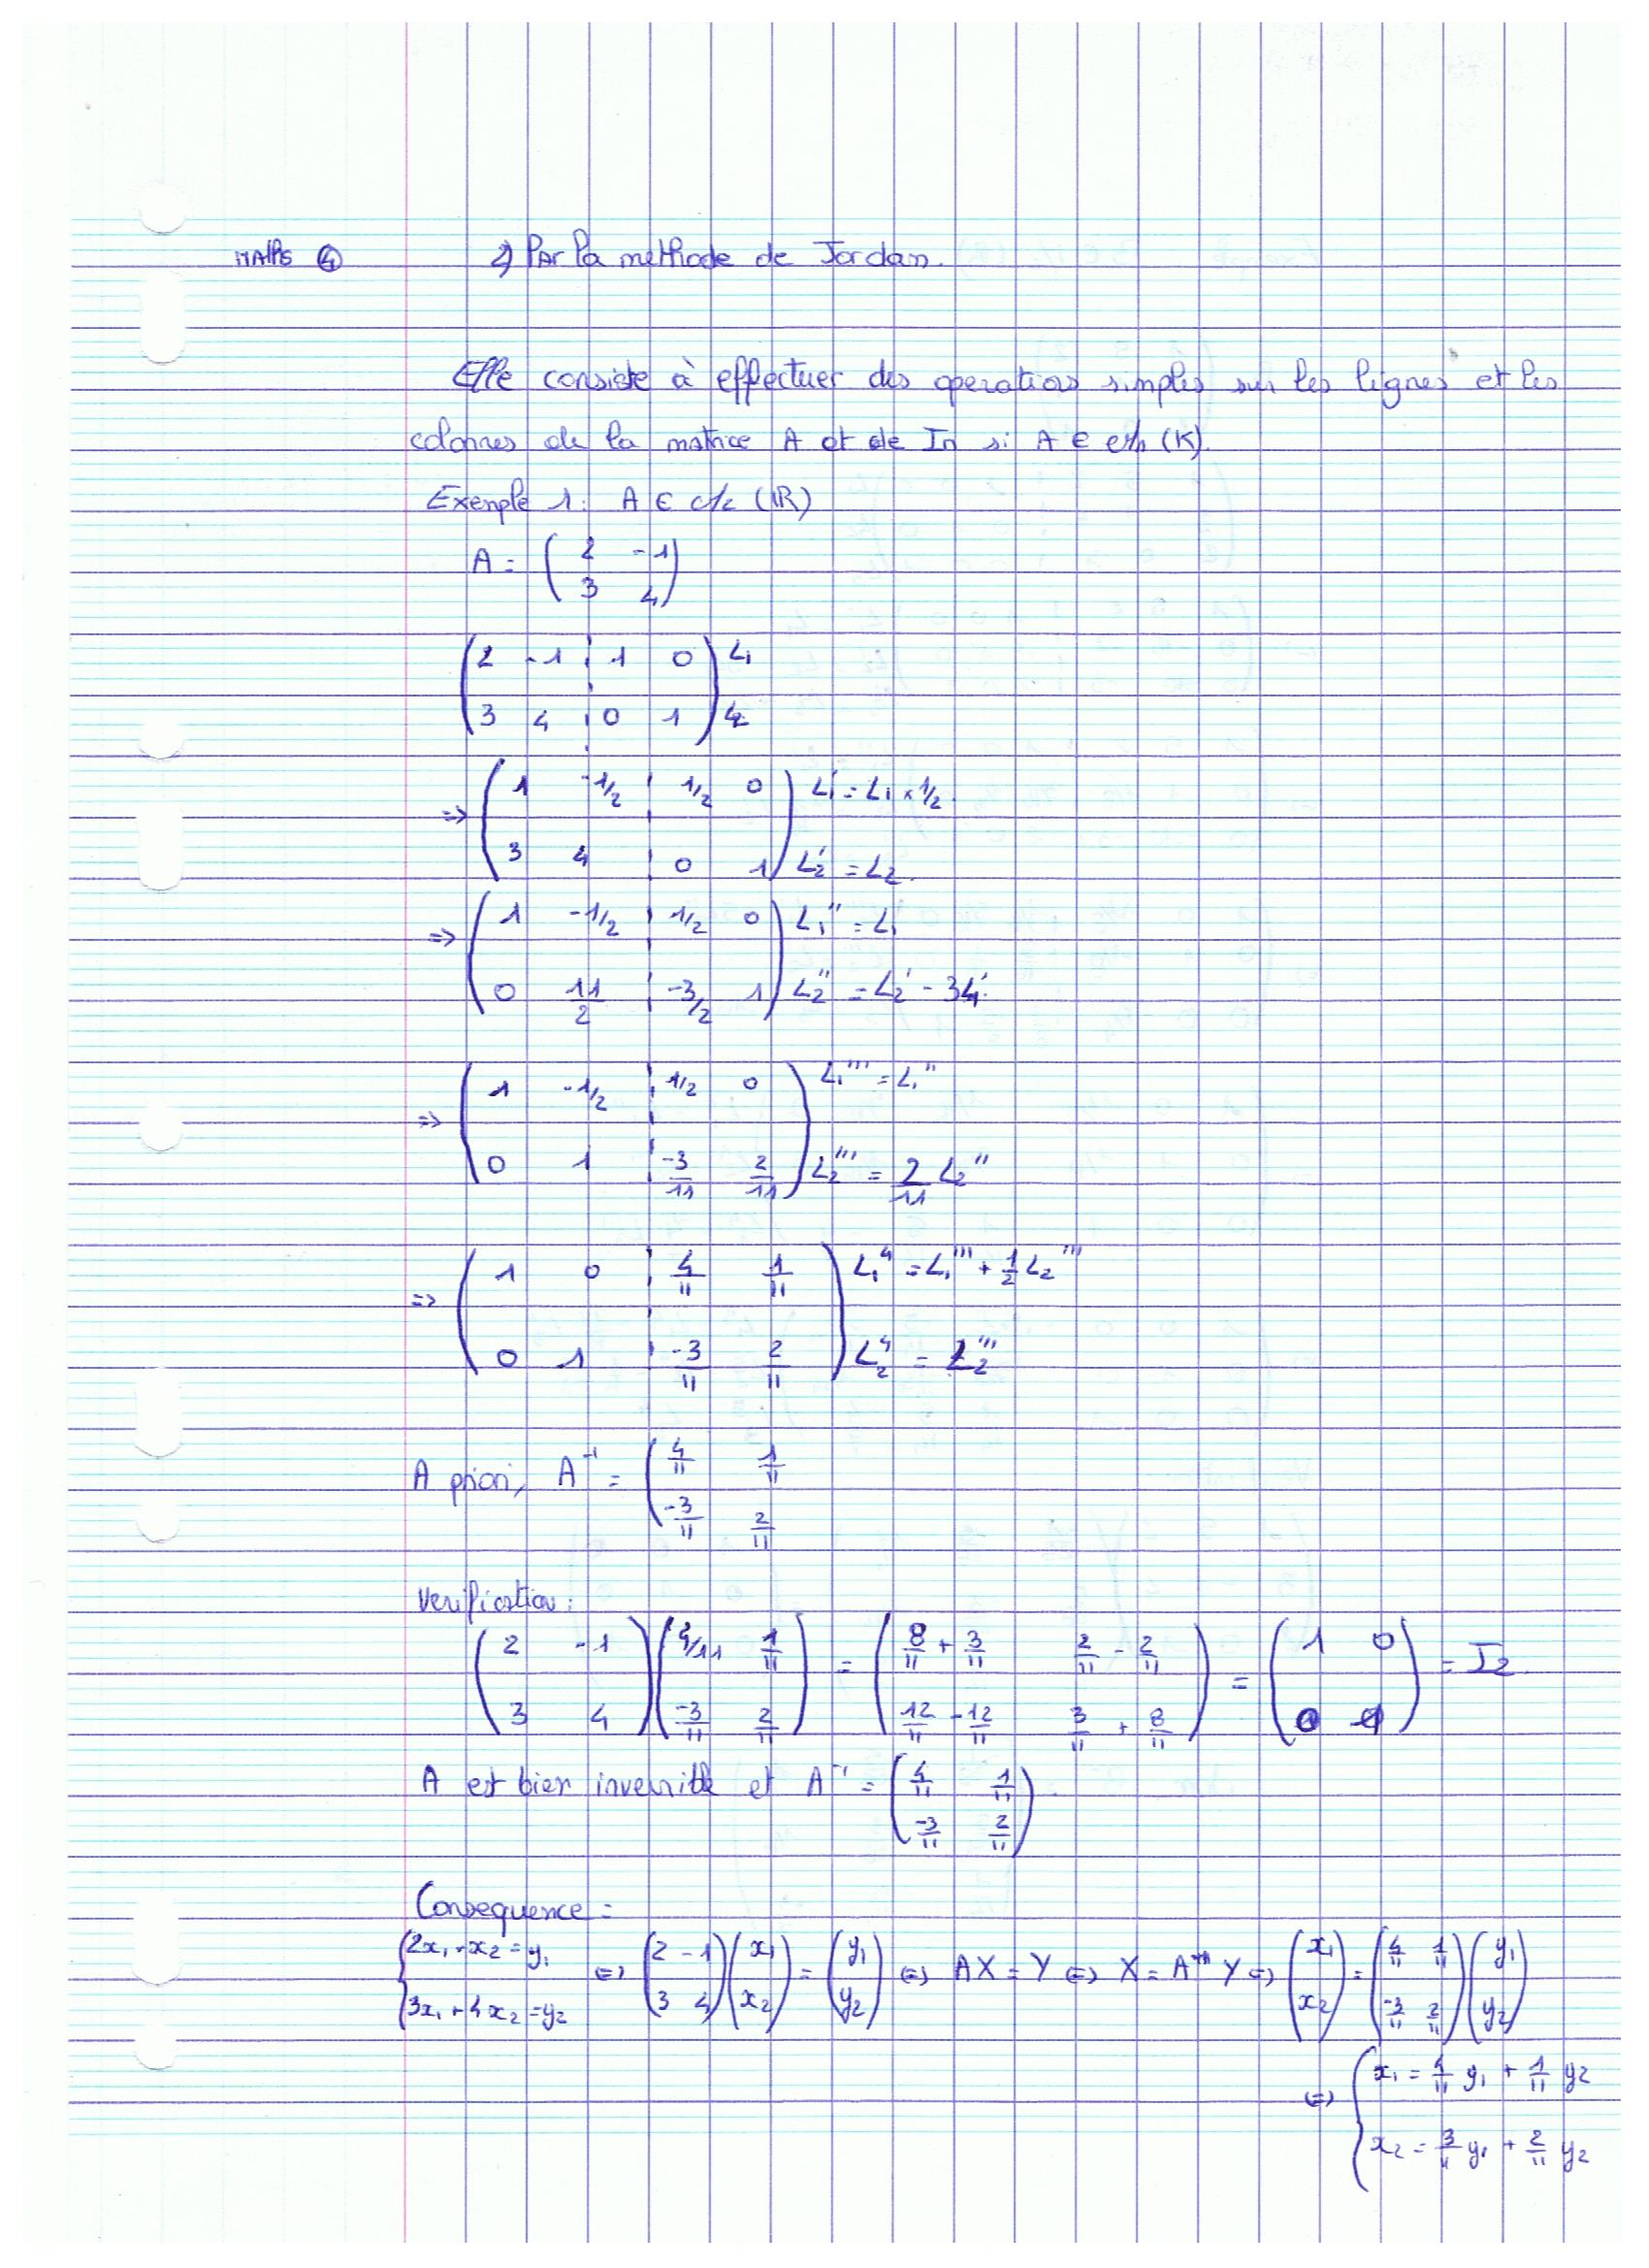 MATHS ④ 2) Par la methode de Jordan.
Elle consiste à effectuer des operations simples sur les lignes et les
colonnes de la matrice A et de In si A ∈ Mn (K).
Exemple 1: A ∈ M2 (IR)
A = ( 2 -1
3 4 )
( 2 -1 ¦ 1 0 ) L1
( 3 4 ¦ 0 1 ) L2
=> ( 1 -1/2 ¦ 1/2 0 ) L1' = L1 × 1/2
( 3 4 ¦ 0 1 ) L2' = L2
=> ( 1 -1/2 ¦ 1/2 0 ) L1'' = L1'
( 0 11/2 ¦ -3/2 1 ) L2'' = L2' - 3L1'
=> ( 1 -1/2 ¦ 1/2 0 ) L1''' = L1''
( 0 1 ¦ -3/11 2/11 ) L2''' = 2/11 L2''
=> ( 1 0 ¦ 4/11 1/11 ) L1⁴ = L1''' + 1/2 L2'''
( 0 1 ¦ -3/11 2/11 ) L2⁴ = L2'''
A priori, A⁻¹ = ( 4/11 1/11
-3/11 2/11
Verification:
( 2 -1 ) ( 4/11 1/11 ) = ( 8/11 + 3/11 2/11 - 2/11 ) = ( 1 0 ) = I2
( 3 4 ) ( -3/11 2/11 ) ( 12/11 - 12/11 3/11 + 8/11 ) ( 0 1 )
A est bien inversible et A⁻¹ = ( 4/11 1/11 )
( -3/11 2/11 )
Consequence =
{ 2x1 - x2 = y1 <=> ( 2 -1 ) ( x1 ) = ( y1 ) <=> AX = Y <=> X = A⁻¹ Y <=> ( x1 ) = ( 4/11 1/11 ) ( y1 )
{ 3x1 + 4x2 = y2 ( 3 4 ) ( x2 ) ( y2 ) ( x2 ) ( -3/11 2/11 ) ( y2 )
<=> { x1 = 4/11 y1 + 1/11 y2
{ x2 = 3/11 y1 + 2/11 y2